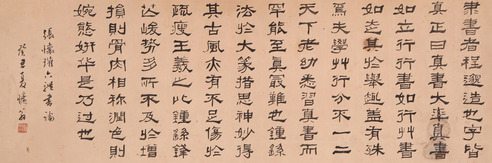 隸書者程邈造也字皆
真正曰真書大率真書
如立行書如行艸書
如走其於舉趣蓋有殊
焉夫學艸行分不一二
天下老幼悉習真書而
罕能至其最難也鍾繇
法於大篆措思神妙得
其古風亦有不足傷於
疏瘦王羲之比鍾繇鋒
峻勢多所不及於增
損則骨肉相稱潤色則
婉態妍華是乃過也
張懷瓘六體書論
癸丑夏